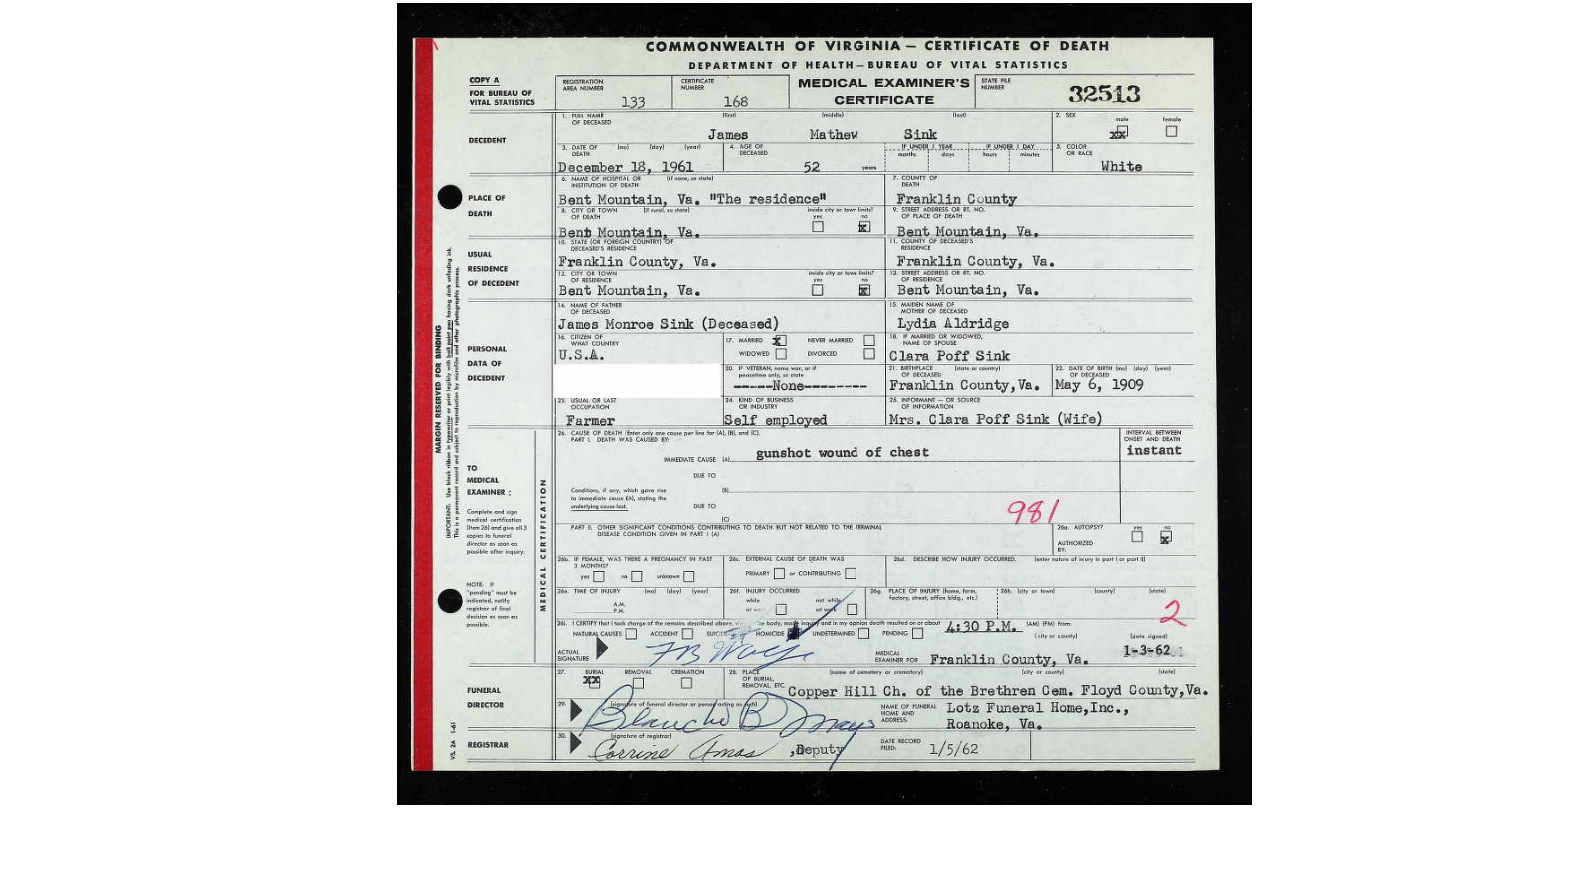 COMMONWEALTH OF VIRGINIA — CERTIFICATE OF DEATH
DEPARTMENT OF HEALTH—BUREAU OF VITAL STATISTICS
COPY A
FOR BUREAU OF
VITAL STATISTICS
REGISTRATION
AREA NUMBER
133
CERTIFICATE
NUMBER
168
MEDICAL EXAMINER'S
CERTIFICATE
STATE FILE
NUMBER
32513
DECEDENT
1. FULL NAME
OF DECEASED
(first) (middle) (last)
James Mathew Sink
2. SEX
male female
xx
3. DATE OF (mo) (day) (year)
DEATH
December 18, 1961
4. AGE OF
DECEASED
52 years
IF UNDER 1 YEAR IF UNDER 1 DAY
months days hours minutes
5. COLOR
OR RACE
White
PLACE OF
DEATH
6. NAME OF HOSPITAL OR (if none, so state)
INSTITUTION OF DEATH
Bent Mountain, Va. "The residence"
7. COUNTY OF
DEATH
Franklin County
8. CITY OR TOWN (if rural, so state) inside city or town limits?
OF DEATH yes no
Bent Mountain, Va. x
9. STREET ADDRESS OR RT. NO.
OF PLACE OF DEATH
Bent Mountain, Va.
USUAL
RESIDENCE
OF DECEDENT
10. STATE (OR FOREIGN COUNTRY) OF
DECEASED'S RESIDENCE
Franklin County, Va.
11. COUNTY OF DECEASED'S
RESIDENCE
Franklin County, Va.
12. CITY OR TOWN inside city or town limits?
OF RESIDENCE yes no
Bent Mountain, Va. x
13. STREET ADDRESS OR RT. NO.
OF RESIDENCE
Bent Mountain, Va.
PERSONAL
DATA OF
DECEDENT
14. NAME OF FATHER
OF DECEASED
James Monroe Sink (Deceased)
15. MAIDEN NAME OF
MOTHER OF DECEASED
Lydia Aldridge
16. CITIZEN OF
WHAT COUNTRY
U.S.A.
17. MARRIED x NEVER MARRIED
WIDOWED DIVORCED
18. IF MARRIED OR WIDOWED,
NAME OF SPOUSE
Clara Poff Sink
20. IF VETERAN, name war, or if
peacetime only, so state
-----None--------
21. BIRTHPLACE (state or country)
OF DECEASED
Franklin County,Va.
22. DATE OF BIRTH (mo) (day) (year)
OF DECEASED
May 6, 1909
23. USUAL OR LAST
OCCUPATION
Farmer
24. KIND OF BUSINESS
OR INDUSTRY
Self employed
25. INFORMANT — OR SOURCE
OF INFORMATION
Mrs. Clara Poff Sink (Wife)
MARGIN RESERVED FOR BINDING
TO
MEDICAL
EXAMINER :
Complete and sign
medical certification
(Item 26) and give all 3
copies to funeral
director as soon as
possible after inquiry.
NOTE. If
"pending" must be
indicated, notify
registrar of final
decision as soon as
possible.
MEDICAL CERTIFICATION
26. CAUSE OF DEATH (Enter only one cause per line for (A), (B), and (C).
PART I. DEATH WAS CAUSED BY:
IMMEDIATE CAUSE (A) gunshot wound of chest
INTERVAL BETWEEN
ONSET AND DEATH
instant
DUE TO
Conditions, if any, which gave rise (B)
to immediate cause (A), stating the
underlying cause last. DUE TO
(C)
981
PART II. OTHER SIGNIFICANT CONDITIONS CONTRIBUTING TO DEATH BUT NOT RELATED TO THE TERMINAL
DISEASE CONDITION GIVEN IN PART I (A)
26a. AUTOPSY? yes no
AUTHORIZED
BY: x
26b. IF FEMALE, WAS THERE A PREGNANCY IN PAST
3 MONTHS?
yes no unknown
26c. EXTERNAL CAUSE OF DEATH WAS
PRIMARY or CONTRIBUTING
26d. DESCRIBE HOW INJURY OCCURRED. (enter nature of injury in part I or part II)
26e. TIME OF INJURY (mo) (day) (year)
A.M.
P.M.
26f. INJURY OCCURRED
while not while
at work at work
26g. PLACE OF INJURY (home, farm,
factory, street, office bldg., etc.)
26h. (city or town) (county) (state)
2
26i. I CERTIFY that I took charge of the remains described above, body, made inquiry and in my opinion death resulted on or about 4:30 P.M. (AM) (PM) from:
NATURAL CAUSES ACCIDENT SUICIDE HOMICIDE UNDETERMINED PENDING
(city or county) (date signed)
ACTUAL
SIGNATURE
MEDICAL
EXAMINER FOR Franklin County, Va.
1-3-62
FUNERAL
DIRECTOR
27. BURIAL REMOVAL CREMATION
xx
28. PLACE (name of cemetery or crematory) (city or county) (state)
OF BURIAL,
REMOVAL, ETC. Copper Hill Ch. of the Brethren Cem. Floyd County,Va.
29. (signature of funeral director or person acting as such)
Blanche B Mays
NAME OF FUNERAL
HOME AND
ADDRESS:
Lotz Funeral Home,Inc.,
Roanoke, Va.
VS. 2A 1-61
REGISTRAR
30. (signature of registrar)
Corrine Amos ,Deputy
DATE RECORD
FILED:
1/5/62